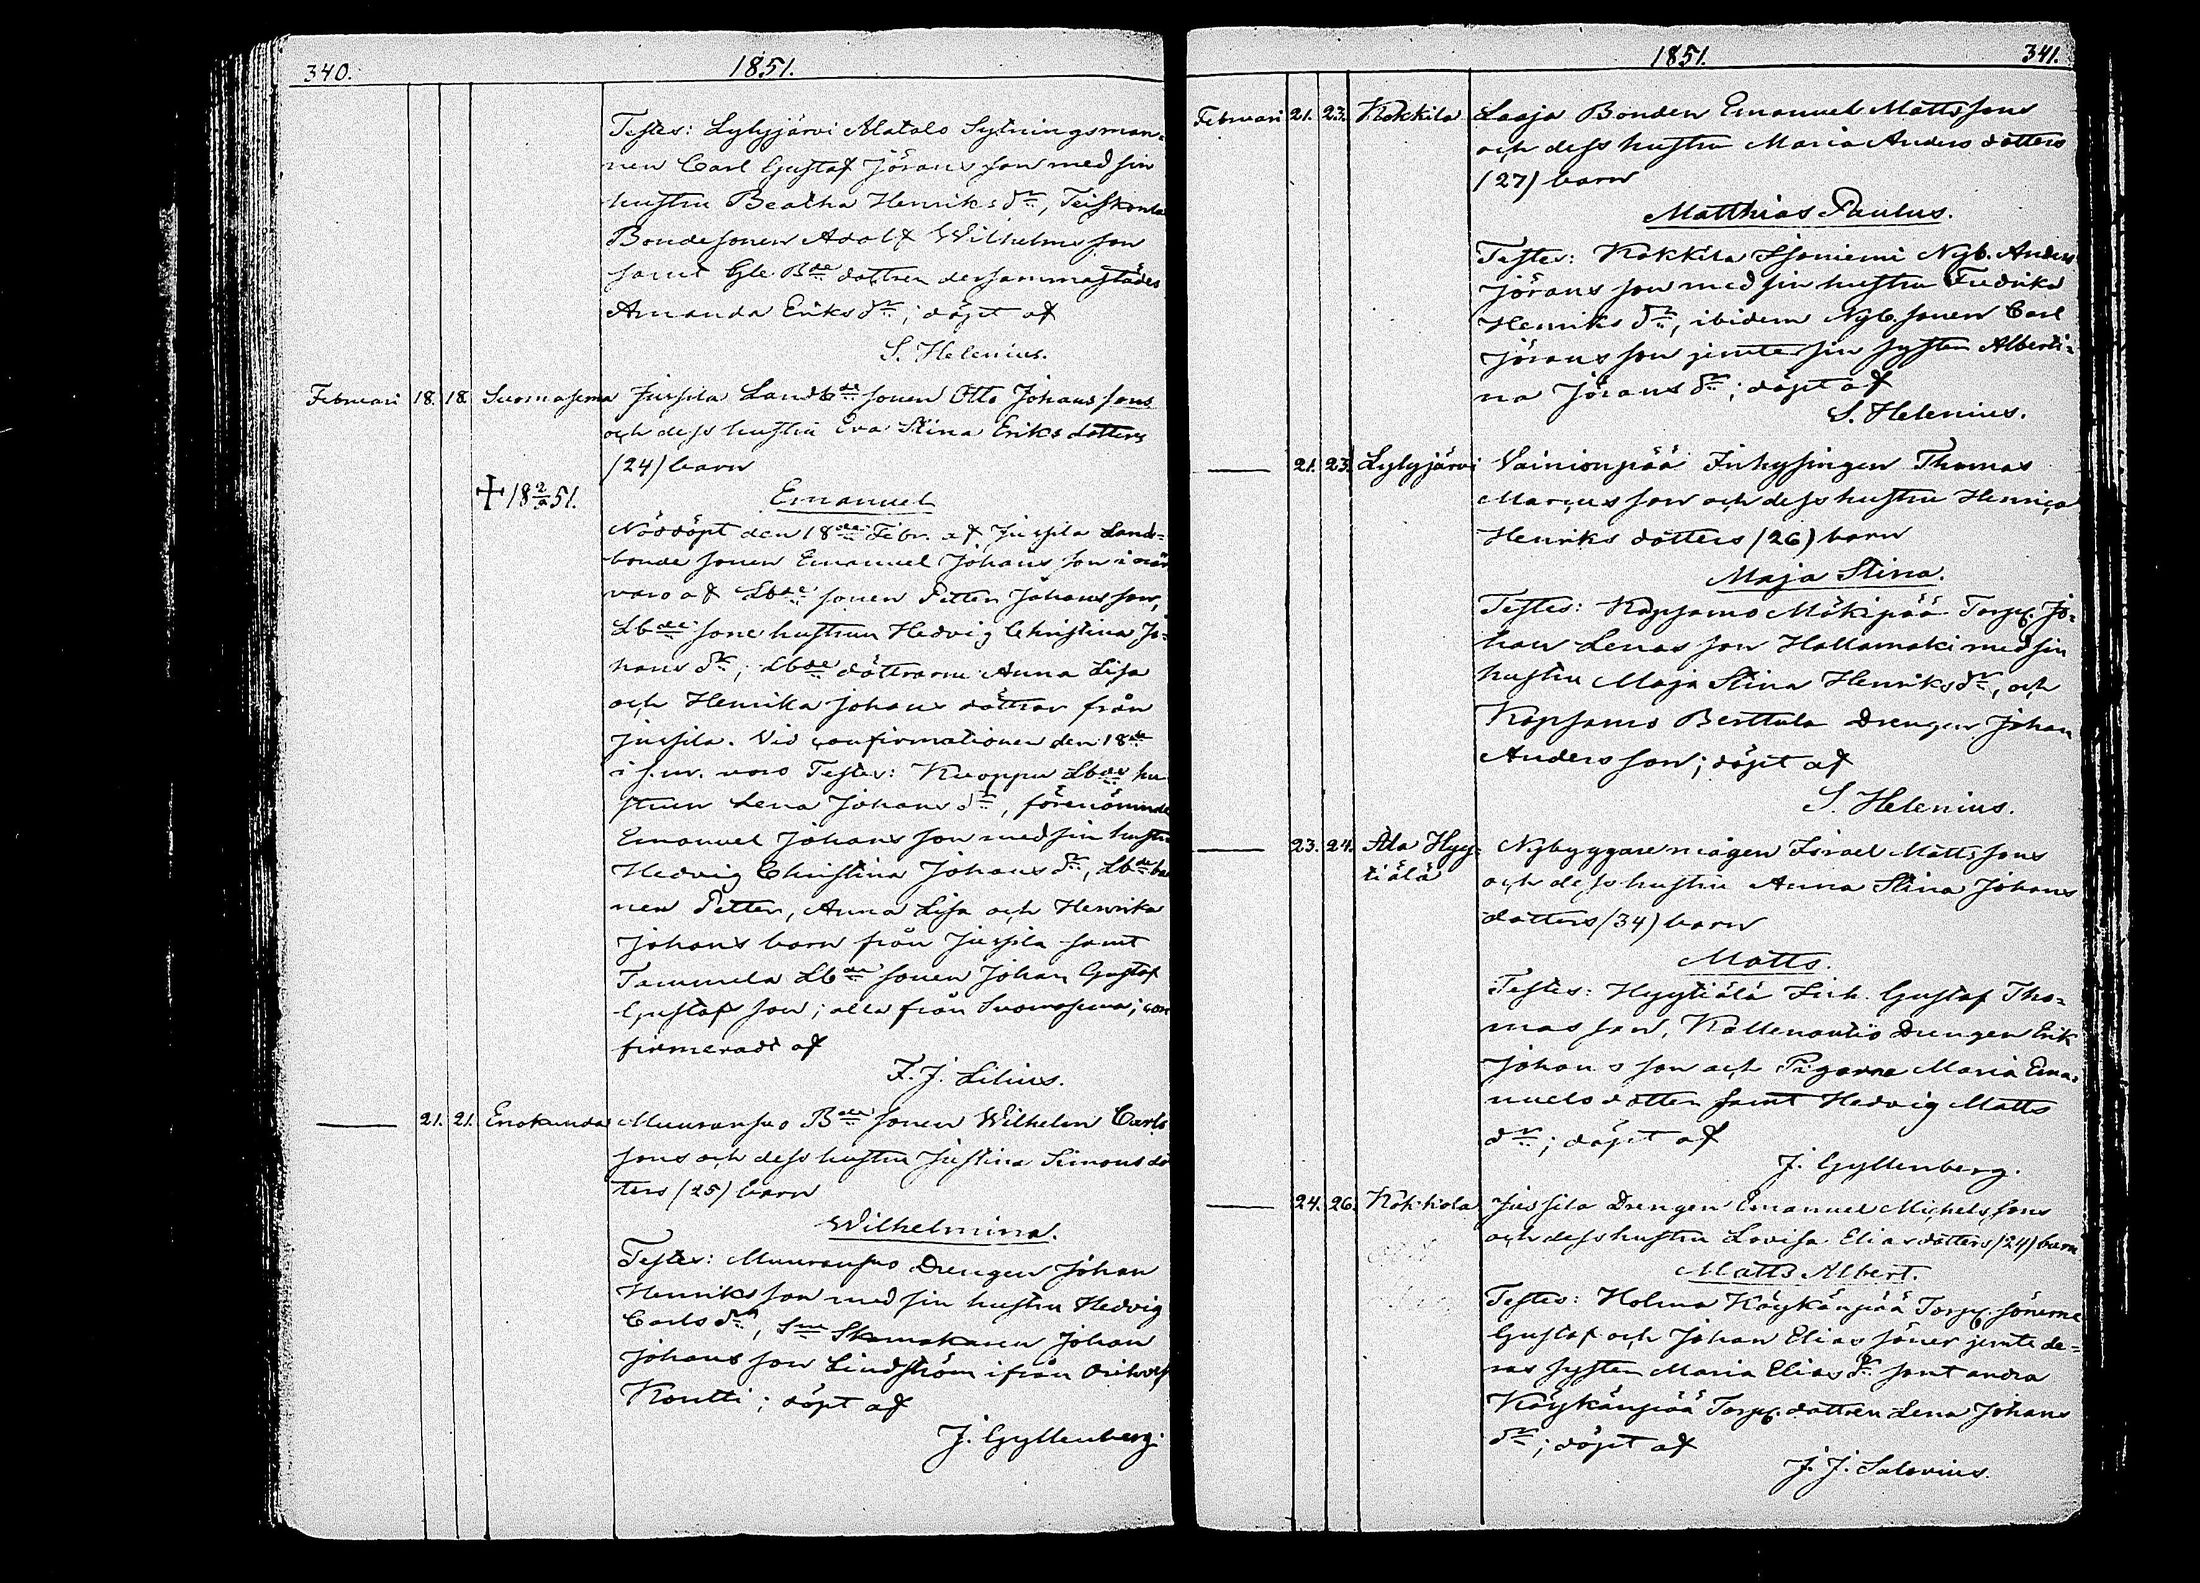 340.
1851.
Testes: Lylyjärvi Alatalo Sytningsman-
nen Carl Gustaf Jörans son med sin
hustru Beatha Henriks dr, Teiskonla
Bondesonen Adolf Wilhelms son
samt Gle Bde dottren dersammastädes
Amanda Eriks dr; döpt af
S. Helenius.
Februari 18. 18. Suomasema Jussila Landbde sonen Otto Johans sons
och dess hustru Eva Stina Eriks dotters
(24) barn
✝ 18 2/ 51.
Emanuel
Nöddöpt den 18de Febr. af Jussila Land-
bonde sonen Emanuel Johans son i när
varo af Lbde sonen Petter Johans son,
Lbde sone hustrun Hedvig Christina Jo-
hans dr; Lbde döttrarne Anna Lisa
och Henrika Johans döttrar från
Jussila. Vid confirmationen den 18de
i s.m. voro Testes: Kuoppu Lbde hu
strun Lena Johans dr, förenämnde
Emanuel Johans son med sin hustru
Hedvig Christina Johans dr, Lbde bar
nen Petter, Anna Lisa och Henrika
Johans barn från Jussila samt
Tammela Lbde sonen Johan Gustaf
Gustafs son; alla från Suomasema; con
firmeradt af
F. J. Lilius.
21. 21. Enokunda Muuransuo Bde sonen Wilhelm Carls
sons och dess hustru Justina Simons do
ters (25) barn
Wilhelmina.
Testes: Muuransuo Drengen Johan
Henriks son med sin hustru Hedvig
Carls dr, Sne Skomakaren Johan
Johans son Lindström ifrån Orihvesi
Koutti; döpt af
J. Gyllenberg.
1851.
341.
Februari 21. 23. Kokkila Laaja Bonden Emanuel Matts sons
och dess hustru Maria Anders dotters
(27) barn
Matthias Paulus.
Testes: Kokkila Isoniemi Nyb. Anders
Jörans son med sin hustru Fredrika
Henriks dr, ibidem Nyb. sonen Carl
Jörans son jemte sin syster Alberti-
na Jörans dr; döpt af
S. Helenius.
21. 23. Lylyjärvi Vainionpää Inhysingen Thomas
Marcus son och dess hustru Henrica
Henriks dotters (26) barn
Maja Stina.
Testes: Kapsamo Mäkipää Torp. Jo-
han Lenas son Hallamäki med sin
hustru Maja Stina Henriks dr, och
Kapsamo Berttula Drengen Johan
Anders son; döpt af
S. Helenius.
23. 24. Ala Hyy- Nybyggare mågen Israel Matts sons
tiälä och dess hustru Anna Stina Johans
dotters (34) barn
Matts.
Testes: Hyytiälä Inh. Gustaf Tho-
mas son, Kallenautio Drengen Erik
Johans son och Pigorna Maria Ema-
nuels dotter samt Hedvig Matts
dr; döpt af
J. Gyllenberg.
24. 26. Kokkola Jussila Drengen Emanuel Michels sons
och dess hustru Lovisa Elias dotters (24) barn
Matts Albert.
Testes: Holma Köykänpää Torp. sönerne
Gustaf och Johan Elias söner jemte de-
ras syster Maria Elias dr samt andra
Köykänpää Torp. dottren Lena Johans
dr; döpt af
J. J. Salovius.